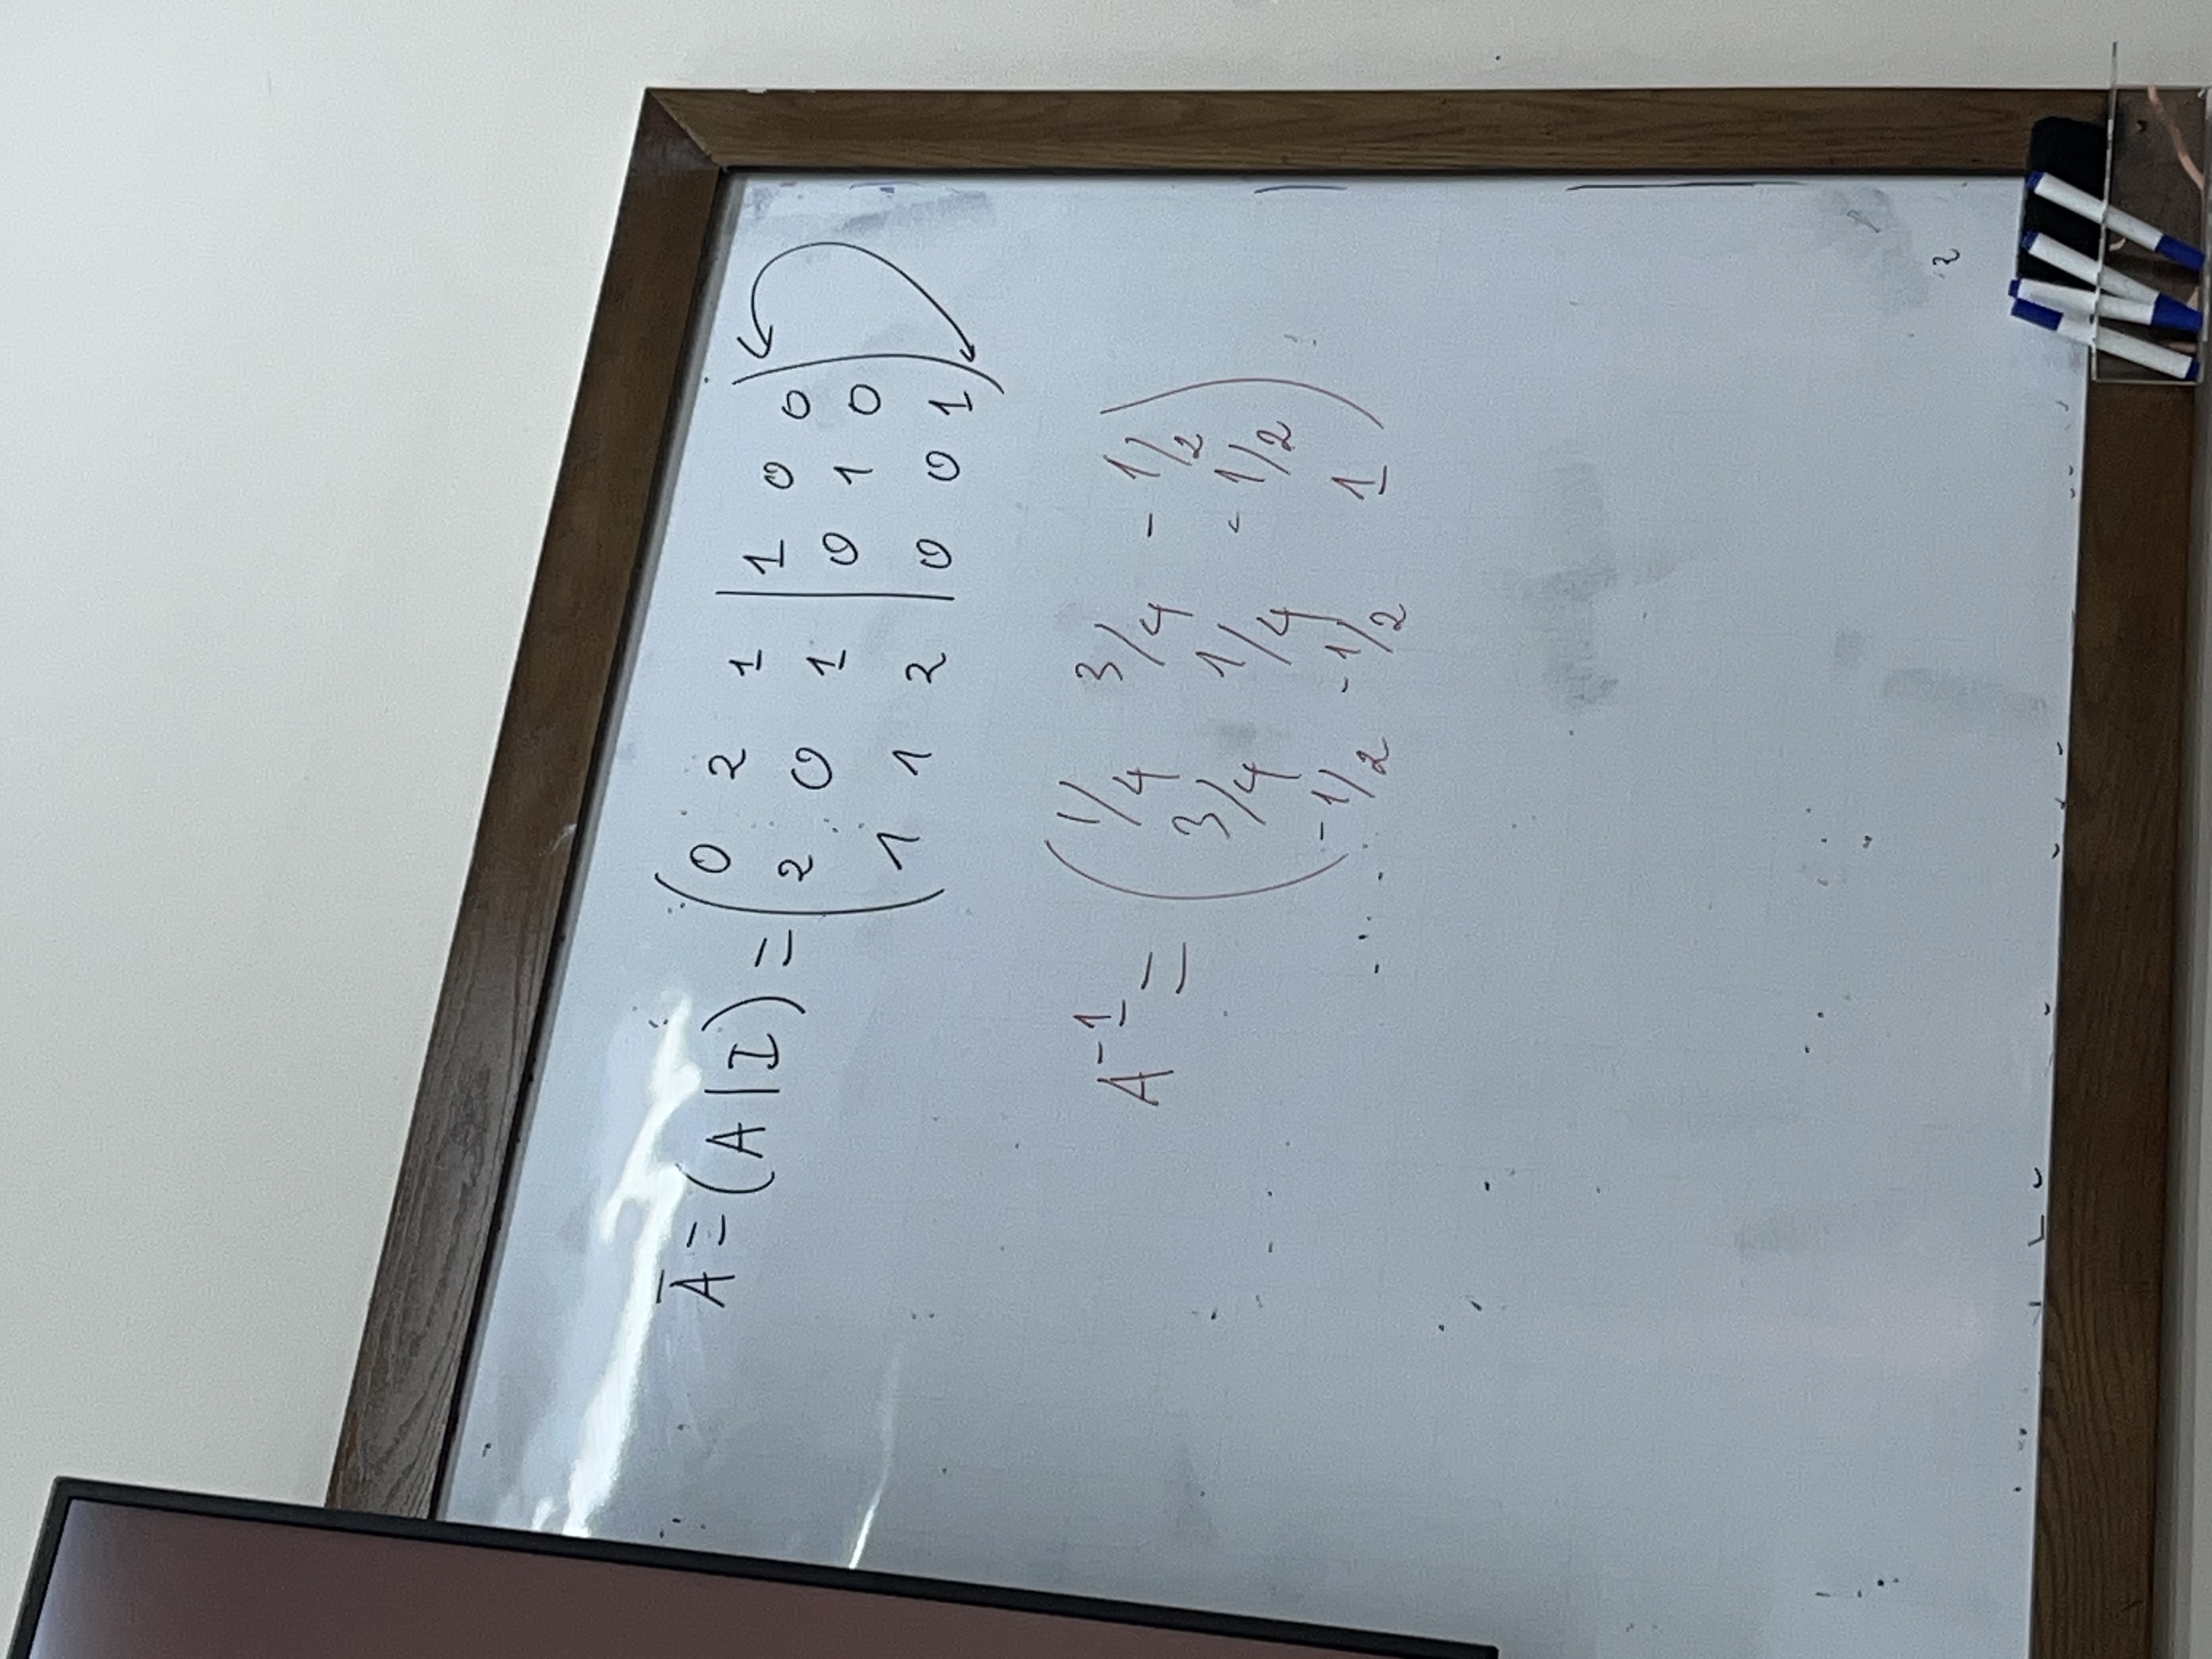 Ā = (A | I) = ( 0 2 1 | 1 0 0
2 0 1 | 0 1 0
1 1 2 | 0 0 1 )
A⁻¹ = ( 1/4 3/4 -1/2
3/4 1/4 -1/2
-1/2 -1/2 1 )
2